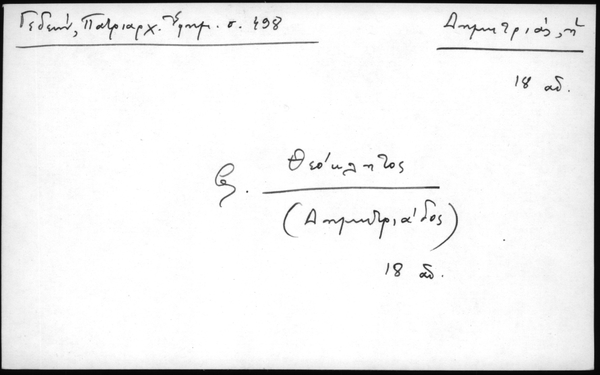 Γεδεών, Πατριαρχ. Ἐφημ. σ. 498
Δημητριάς, ἡ
18 αἰ.
βλ. Θεόκλητος
(Δημητριάδος)
18 αἰ.